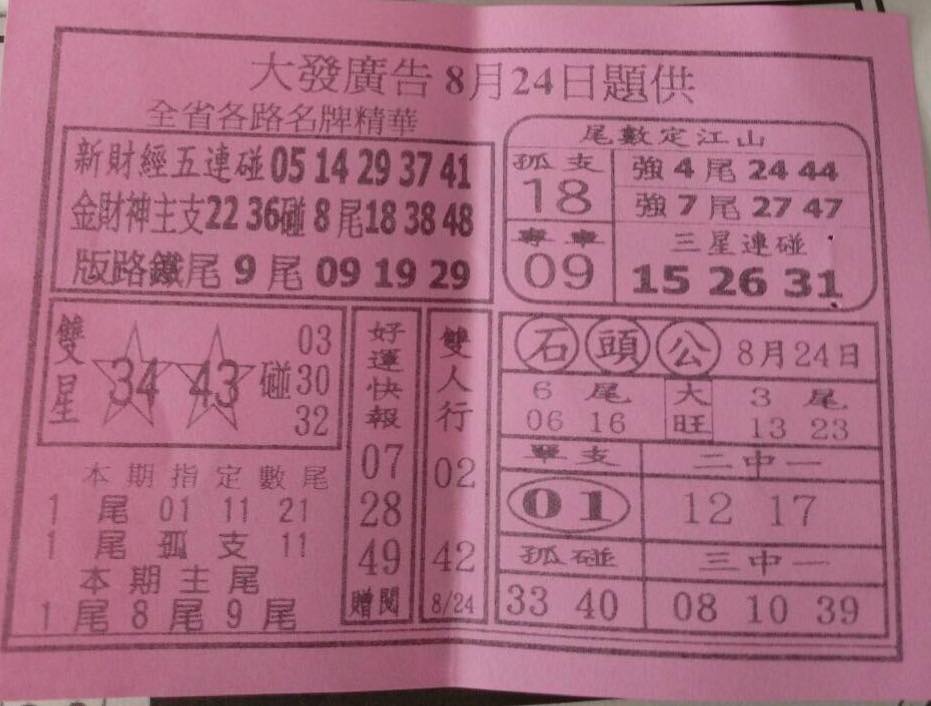 大發廣告 8月24日題供
全省各路名牌精華
新財經五連碰 05 14 29 37 41
金財神主支22 36碰 8 尾18 38 48
版路鐵尾 9 尾 09 19 29
尾數定江山
孤支
18
強 4 尾 24 44
強 7 尾 27 47
專車
09
三星連碰
15 26 31
雙星
34 43 碰
03
30
32
本期指定數尾
1 尾 01 11 21
1 尾 孤 支 11
本期主尾
1 尾 8 尾 9 尾
好運快報
07
28
49
贈閱
雙人行
02
42
8/24
石頭公 8月24日
6 尾
06 16
大旺
3 尾
13 23
單支
01
二中一
12 17
孤碰
33 40
三中一
08 10 39